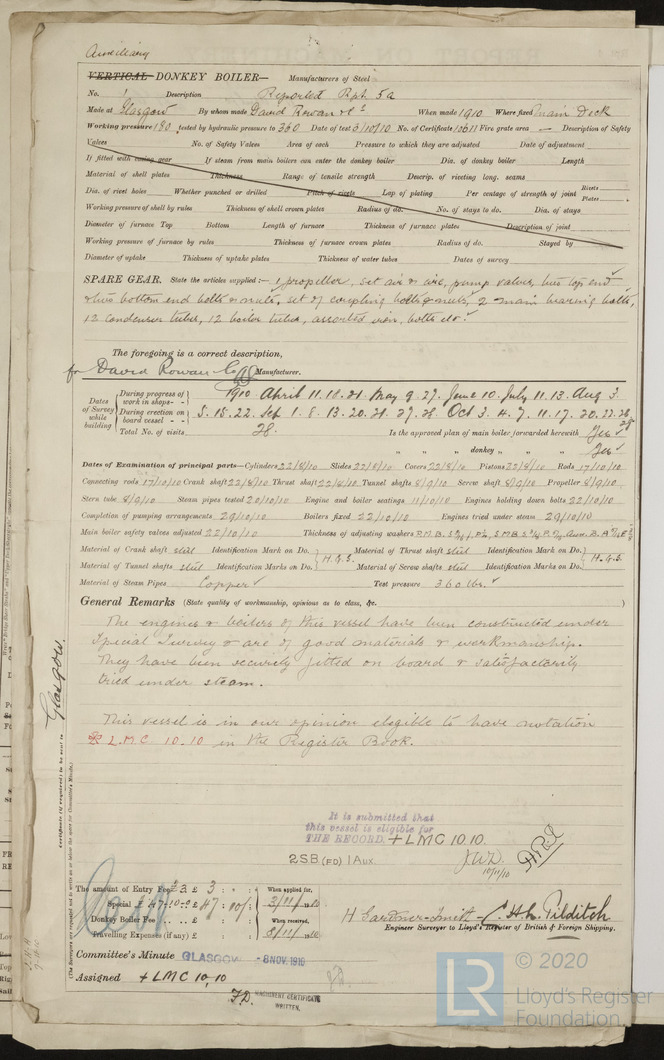 Auxiliary
VERTICAL DONKEY BOILER— Manufacturers of Steel
No. 1 Description Reported Rpt. 5a
Made at Glasgow By whom made David Rowan & Co When made 1910 Where fixed Main Deck
Working pressure 180 tested by hydraulic pressure to 360 Date of test 3/10/10 No. of Certificate 10611 Fire grate area — Description of Safety
Valves No. of Safety Valves Area of each Pressure to which they are adjusted Date of adjustment
If fitted with easing gear If steam from main boilers can enter the donkey boiler Dia. of donkey boiler Length
Material of shell plates Thickness Range of tensile strength Descrip. of riveting long. seams
Dia. of rivet holes Whether punched or drilled Pitch of rivets Lap of plating Per centage of strength of joint Rivets
Plates
Working pressure of shell by rules Thickness of shell crown plates Radius of do. No. of stays to do. Dia. of stays
Diameter of furnace Top Bottom Length of furnace Thickness of furnace plates Description of joint
Working pressure of furnace by rules Thickness of furnace crown plates Radius of do. Stayed by
Diameter of uptake Thickness of uptake plates Thickness of water tubes Dates of survey
SPARE GEAR. State the articles supplied:— 1 propeller, set air & circ. pump valves, two top end
& two bottom end bolts & nuts, set of coupling bolts & nuts, 2 main bearing bolts,
12 condenser tubes, 12 boiler tubes, assorted iron, bolts etc.
The foregoing is a correct description,
for David Rowan & Co Manufacturer.
Dates of Survey while building
During progress of work in shops - - 1910 April 11.18.21 May 9.27. June 10. July 11.13. Aug 3.
During erection on board vessel - - 5.15.22. Sep 1.8.13.20.21.27.28. Oct 3.4.7.11.17.20.22.26 28
Total No. of visits 28. Is the approved plan of main boiler forwarded herewith Yes
" " " donkey " " " Yes
Dates of Examination of principal parts—Cylinders 22/8/10 Slides 22/8/10 Covers 22/8/10 Pistons 22/8/10 Rods 17/10/10
Connecting rods 17/10/10 Crank shaft 22/8/10 Thrust shaft 22/8/10 Tunnel shafts 8/9/10 Screw shaft 8/9/10 Propeller 8/9/10
Stern tube 8/9/10 Steam pipes tested 20/10/10 Engine and boiler seatings 11/10/10 Engines holding down bolts 22/10/10
Completion of pumping arrangements 29/10/10 Boilers fixed 22/10/10 Engines tried under steam 29/10/10
Main boiler safety valves adjusted 22/10/10 Thickness of adjusting washers
Material of Crank shaft steel Identification Mark on Do. H.G.S. Material of Thrust shaft steel Identification Mark on Do. H.G.S.
Material of Tunnel shafts steel Identification Marks on Do. Material of Screw shafts steel Identification Marks on Do.
Material of Steam Pipes Copper Test pressure 360 lbs.
General Remarks (State quality of workmanship, opinions as to class, &c.)
The engines & boilers of this vessel have been constructed under
Special Survey & are of good materials & workmanship.
They have been securely fitted on board & satisfactorily
tried under steam.
This vessel is in our opinion elegible to have notation
L.M.C 10.10 in the Register Book.
It is submitted that
this vessel is eligible for
THE RECORD. + LMC 10.10.
2 S.B (FD) 1 Aux.
J.W.D.
10/11/10
Glasgow.
Certificate (if required) to be sent to
(The Surveyors are requested not to write on or below the space for Committee's Minute.)
The amount of Entry Fee £ 3 : : When applied for,
Special £ 47 : 10 : 2/11/1910
Donkey Boiler Fee £ : : When received,
Travelling Expenses (if any) £ : : 8/11/1910
H Gardner-Smith C.H. Pilditch
Engineer Surveyor to Lloyd's Register of British & Foreign Shipping.
Committee's Minute GLASGOW - 8 NOV. 1910
Assigned + LMC 10,10
F.D. MACHINERY CERTIFICATE
WRITTEN.
© 2020
LR
Lloyd's Register
Foundation